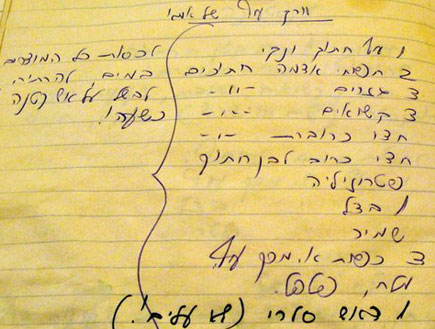 מרק עוף של אמא
1 עוף חתוך ונקי
2 תפוחי אדמה חתוכים
3 גזרים -"-
3 קשואים -"-
חצי כרובית -"-
חצי כרוב לבן חתוך
פטרוזיליה
1 בצל
שמיר
3 כפות א. מרק עוף
מלח, פלפל.
1 ראש סלרי (לא עלים!)
לכסות כל המוצרים
במים, להרתיח
לבשל על אש קטנה
כשעה!